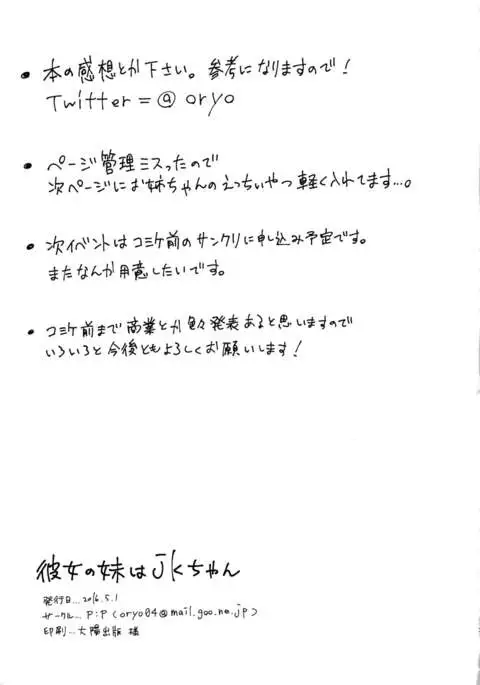 ● 本の感想とか下さい。参考になりますので！
Twitter = @ oryo
● ページ管理ミスったので
次ページにお姉ちゃんのえっちぃやつ軽く入れてます…。
● 次イベントはコミケ前のサンクリに申し込み予定です。
またなんか用意したいです。
● コミケ前まで商業とか色々発表あると思いますので
いろいろと今後ともよろしくお願いします！
彼女の妹はjkちゃん
発行日… 2016.5.1
サークル… P:P (oryo04@mail.goo.ne.jp)
印刷… 大陽出版 様